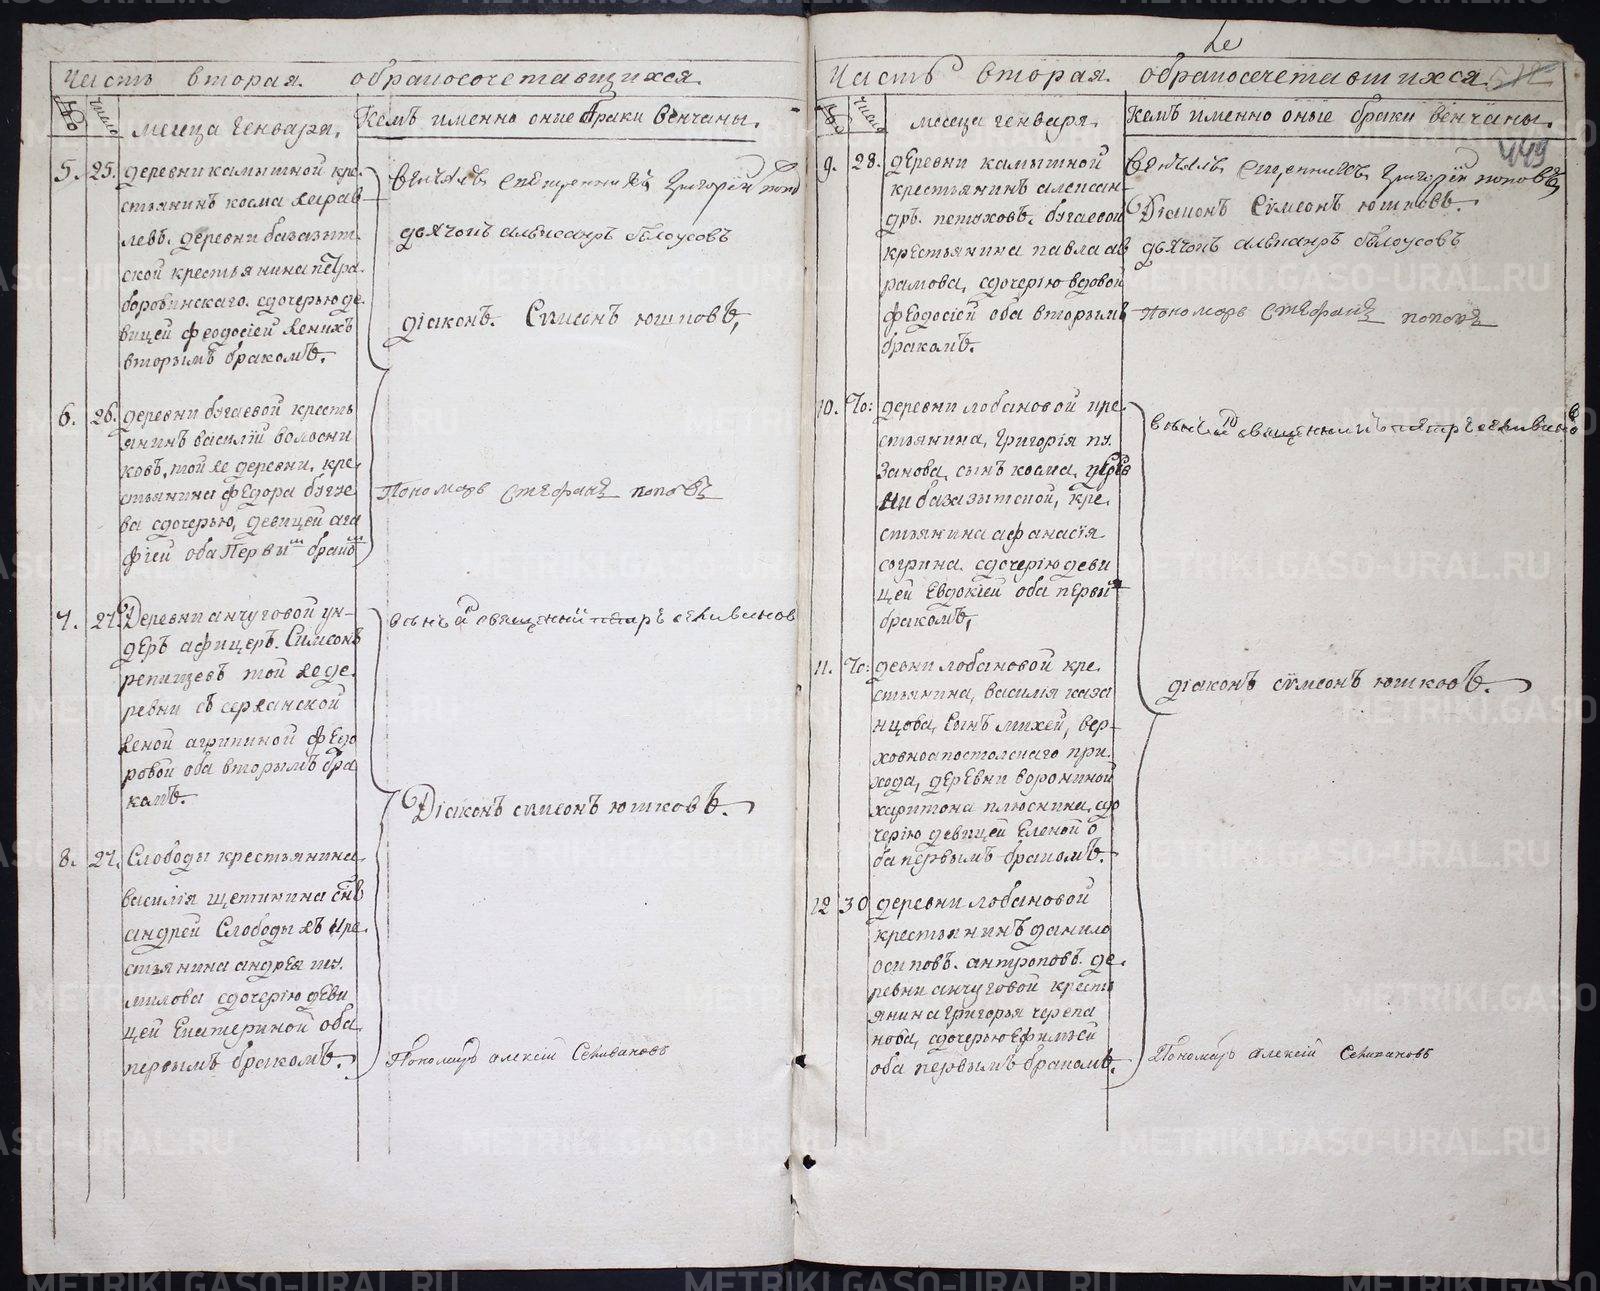 Часть вторая. обракосочетающихся.
№ число месеца генваря. Кемъ именно оние браки венчаны.
5. 25. деревни камышной кре-
стьянинъ косма
левъ. деревни базазыт-
ской крестьянина петра
боровинскаго. сдочерью де-
вицей феодосіей женихъ
вторымъ бракомъ.
Венчалъ священникъ Григорій попо
дьячокъ александръ белоусовъ
діаконъ. Симеонъ юшковъ,
6. 26. деревни бугаевой кресть
янинъ василій волосни
ковъ, той же деревни, кре-
стьянина федора бугае
ва сдочерью, девицей ага
фіей оба первымъ бракомъ
Пономарь стефанъ поповъ
7. 27. Деревни анчуговой ун-
деръ афицеръ. Симеонъ
репищевъ той же де-
ревни съ сержанской
женой агрипиной федо
ровой оба вторымъ бра
комъ.
священникъ петръ селивановъ
Діаконъ симеонъ юшковъ.
8. 27. Слободы крестьянина
василія щетинина сынъ
андрей Слободы жъ кре-
стьянина андрея шу-
милова сдочерію деви
цей Екатериной оба
первымъ бракомъ.
Пономарь алексій Селивановъ
Le
Часть вторая. обракосочетавшихся.
№ число месеца генваря. Кемъ именно оные браки венчаны.
449
9. 28. деревни камышной
крестьянинъ алексан-
дръ. петуховъ. бугаевой
крестьянина павла ав
рамова, сдочерію вдовой
феодосіей оба вторымъ
бракомъ.
Венчалъ священникъ Григорій поповъ
Діаконъ Симеонъ юшковъ.
дьячокъ александръ белоусовъ
Пономарь Стефанъ поповъ
10. деревни лобановой кре-
стьянина, григорія пу-
занова, сынъ косма, дерев
ни базазытской, кре-
стьянина афанасія
согрина. сдочерію деви
цей Евдокіей оба первым
бракомъ,
священникъ петръ селивановъ
11. девни лобановой кре-
стьянина, василія каза
нцова, сынъ михей, вер-
ховноапостолскаго при-
хода, деревни ворониной
харитона плюснина, сдо
черію девицей Еленой о
ба первымъ бракомъ.
діаконъ симеонъ юшковъ.
12 30 деревни лобановой
крестьянинъ данило
осиповъ. антроповъ. де-
ревни анчуговой кресть
янина григорья черепа
нова, сдочерью ефимьей
оба первымъ бракомъ.
Пономарь алексій Селивановъ
METRIKI.GASO-URAL.RU